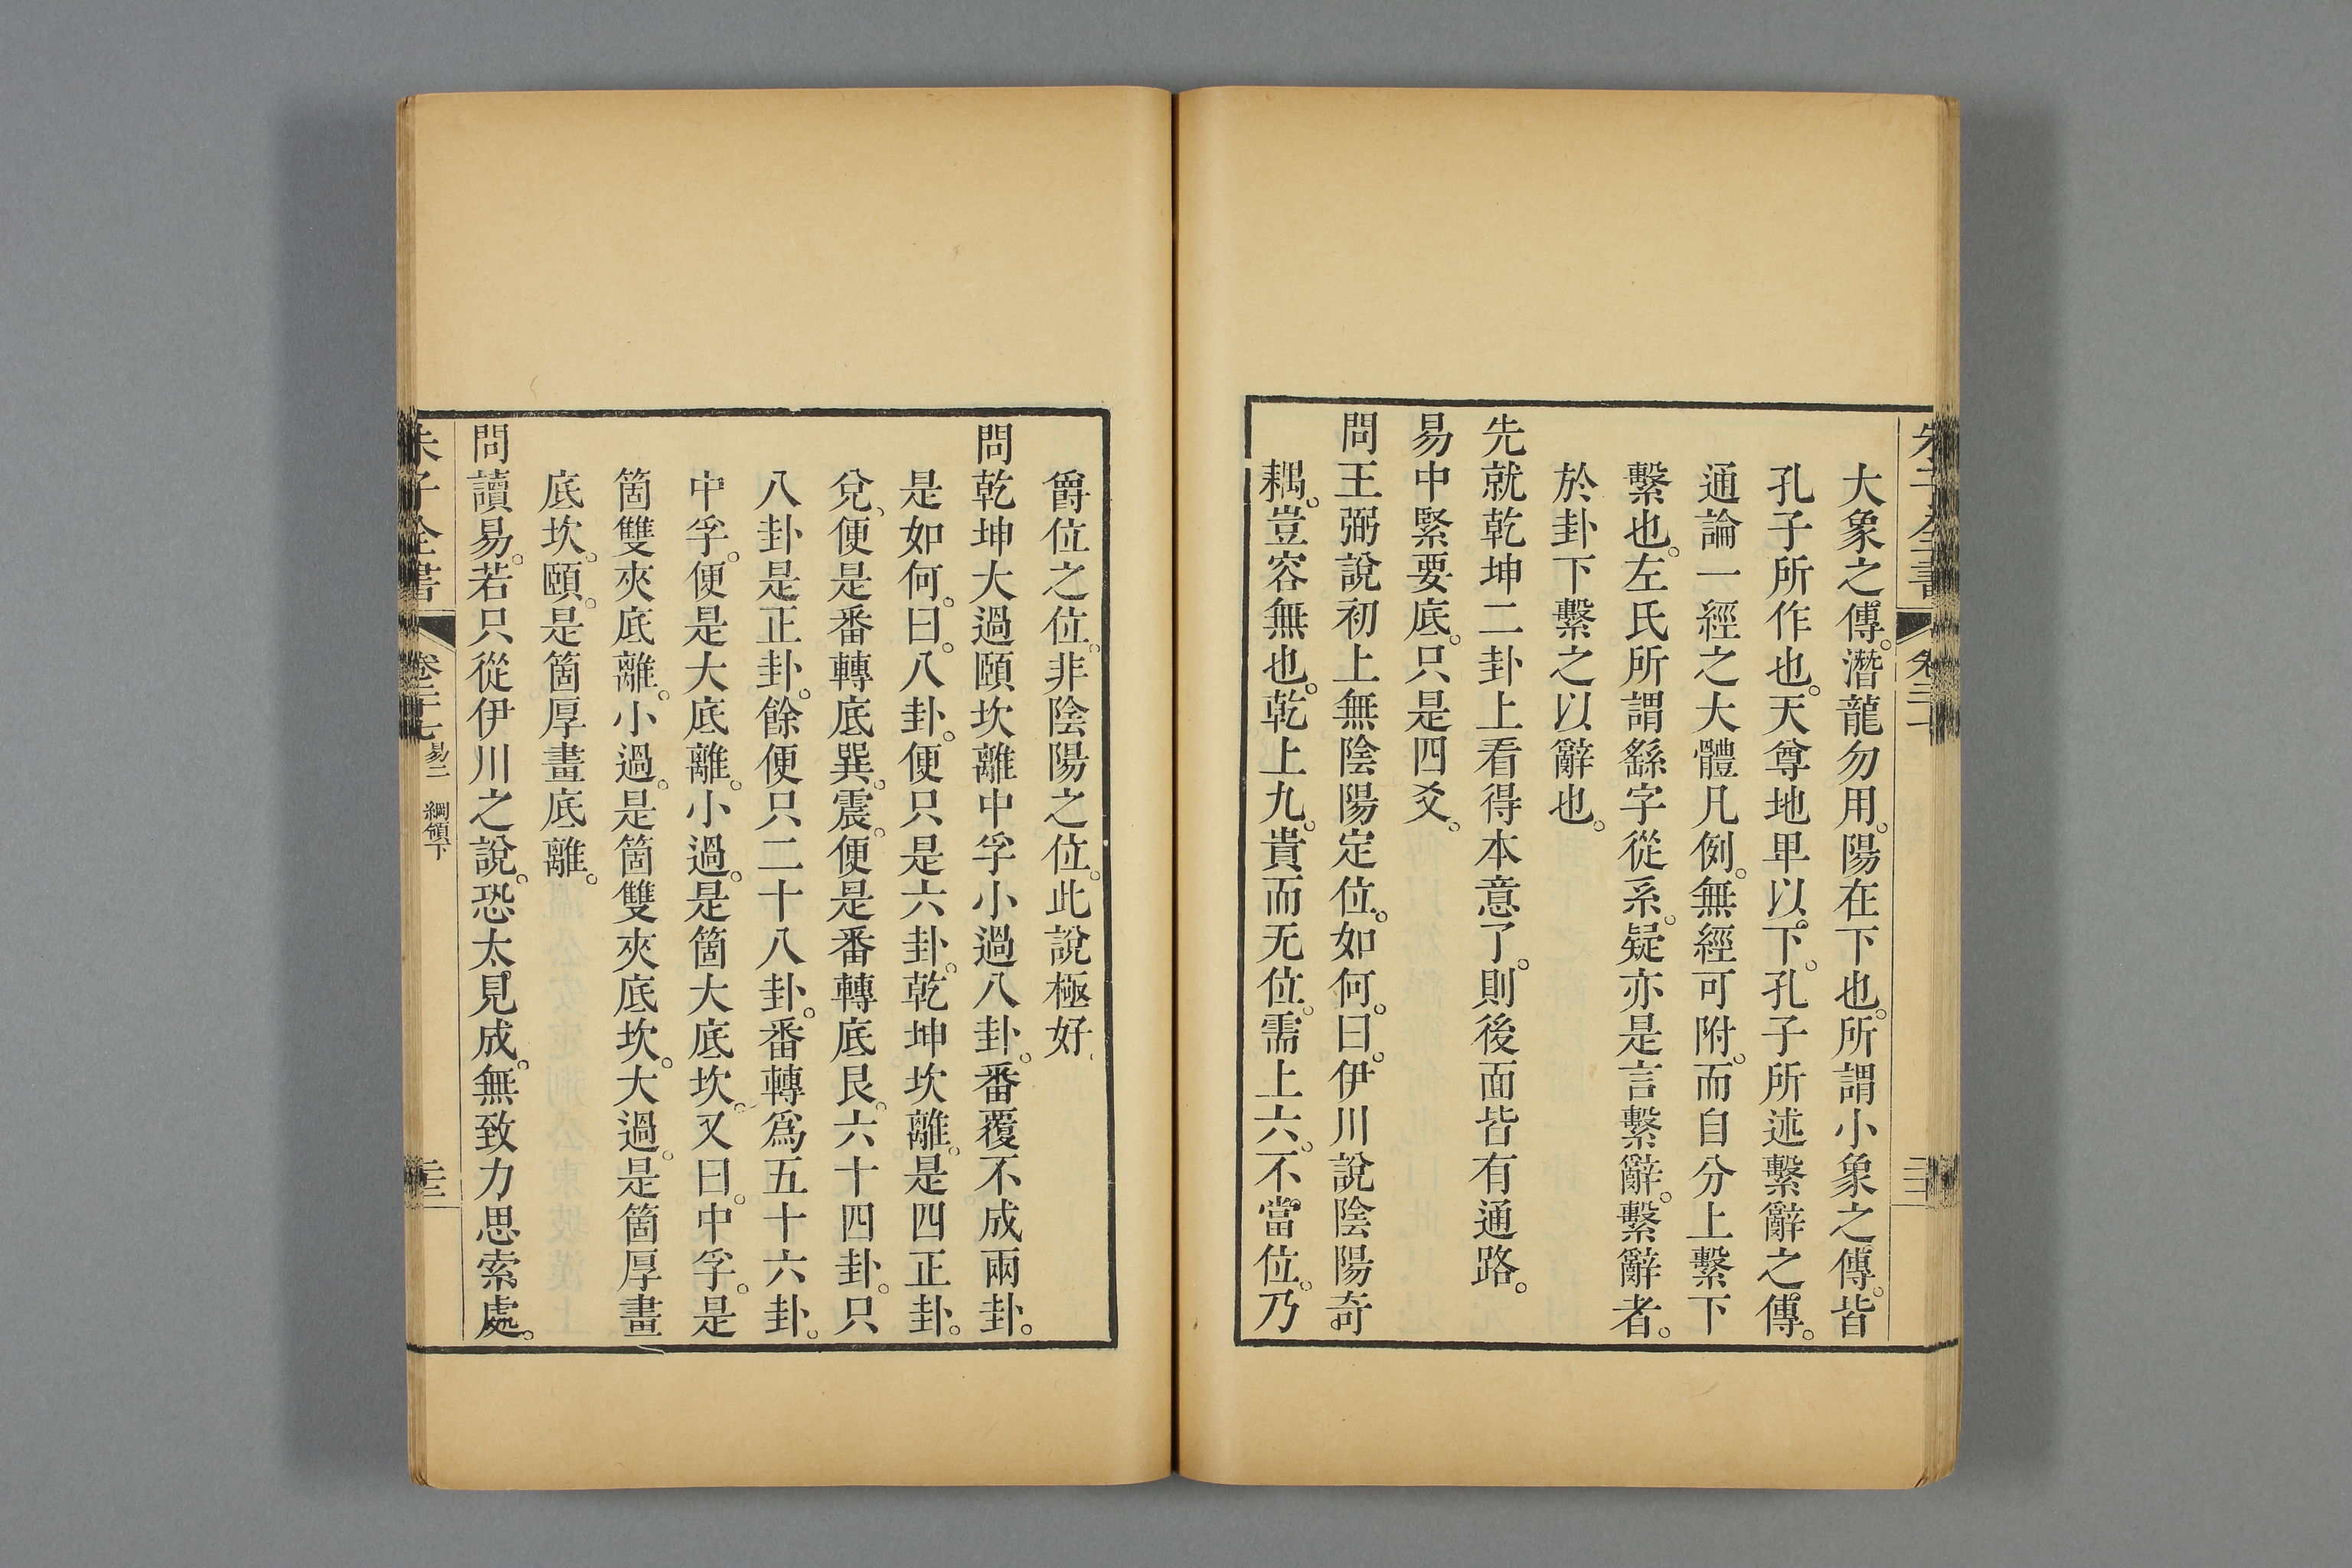 大象之傳。潛龍勿用。陽在下也。所謂小象之傳。皆
孔子所作也。天尊地卑以下。孔子所述繫辭之傳。
通論一經之大體凡例。無經可附。而自分上繫下
繫也。左氏所謂繇字從系。疑亦是言繫辭。繫辭者。
於卦下繫之以辭也。
先就乾坤二卦上看得本意了。則後面皆有通路。
易中緊要底。只是四爻。
問王弼說初上無陰陽定位。如何。曰。伊川說陰陽奇
耦。豈容無也。乾上九。貴而无位。需上六。不當位。乃
爵位之位。非陰陽之位。此說極好。
問乾坤大過頤坎離中孚小過八卦。番覆不成兩卦。
是如何。曰。八卦。便只是六卦。乾坤坎離。是四正卦。
兌、便是番轉底巽。震。便是番轉底艮。六十四卦。只
八卦是正卦。餘便只二十八卦。番轉爲五十六卦。
中孚。便是大底離。小過。是箇大底坎。又曰。中孚。是
箇雙夾底離。小過。是箇雙夾底坎。大過。是箇厚畫
底坎。頤。是箇厚畫底離。
問讀易。若只從伊川之說。恐太見成。無致力思索處。
朱子全書 卷二十七 易二 綱領下